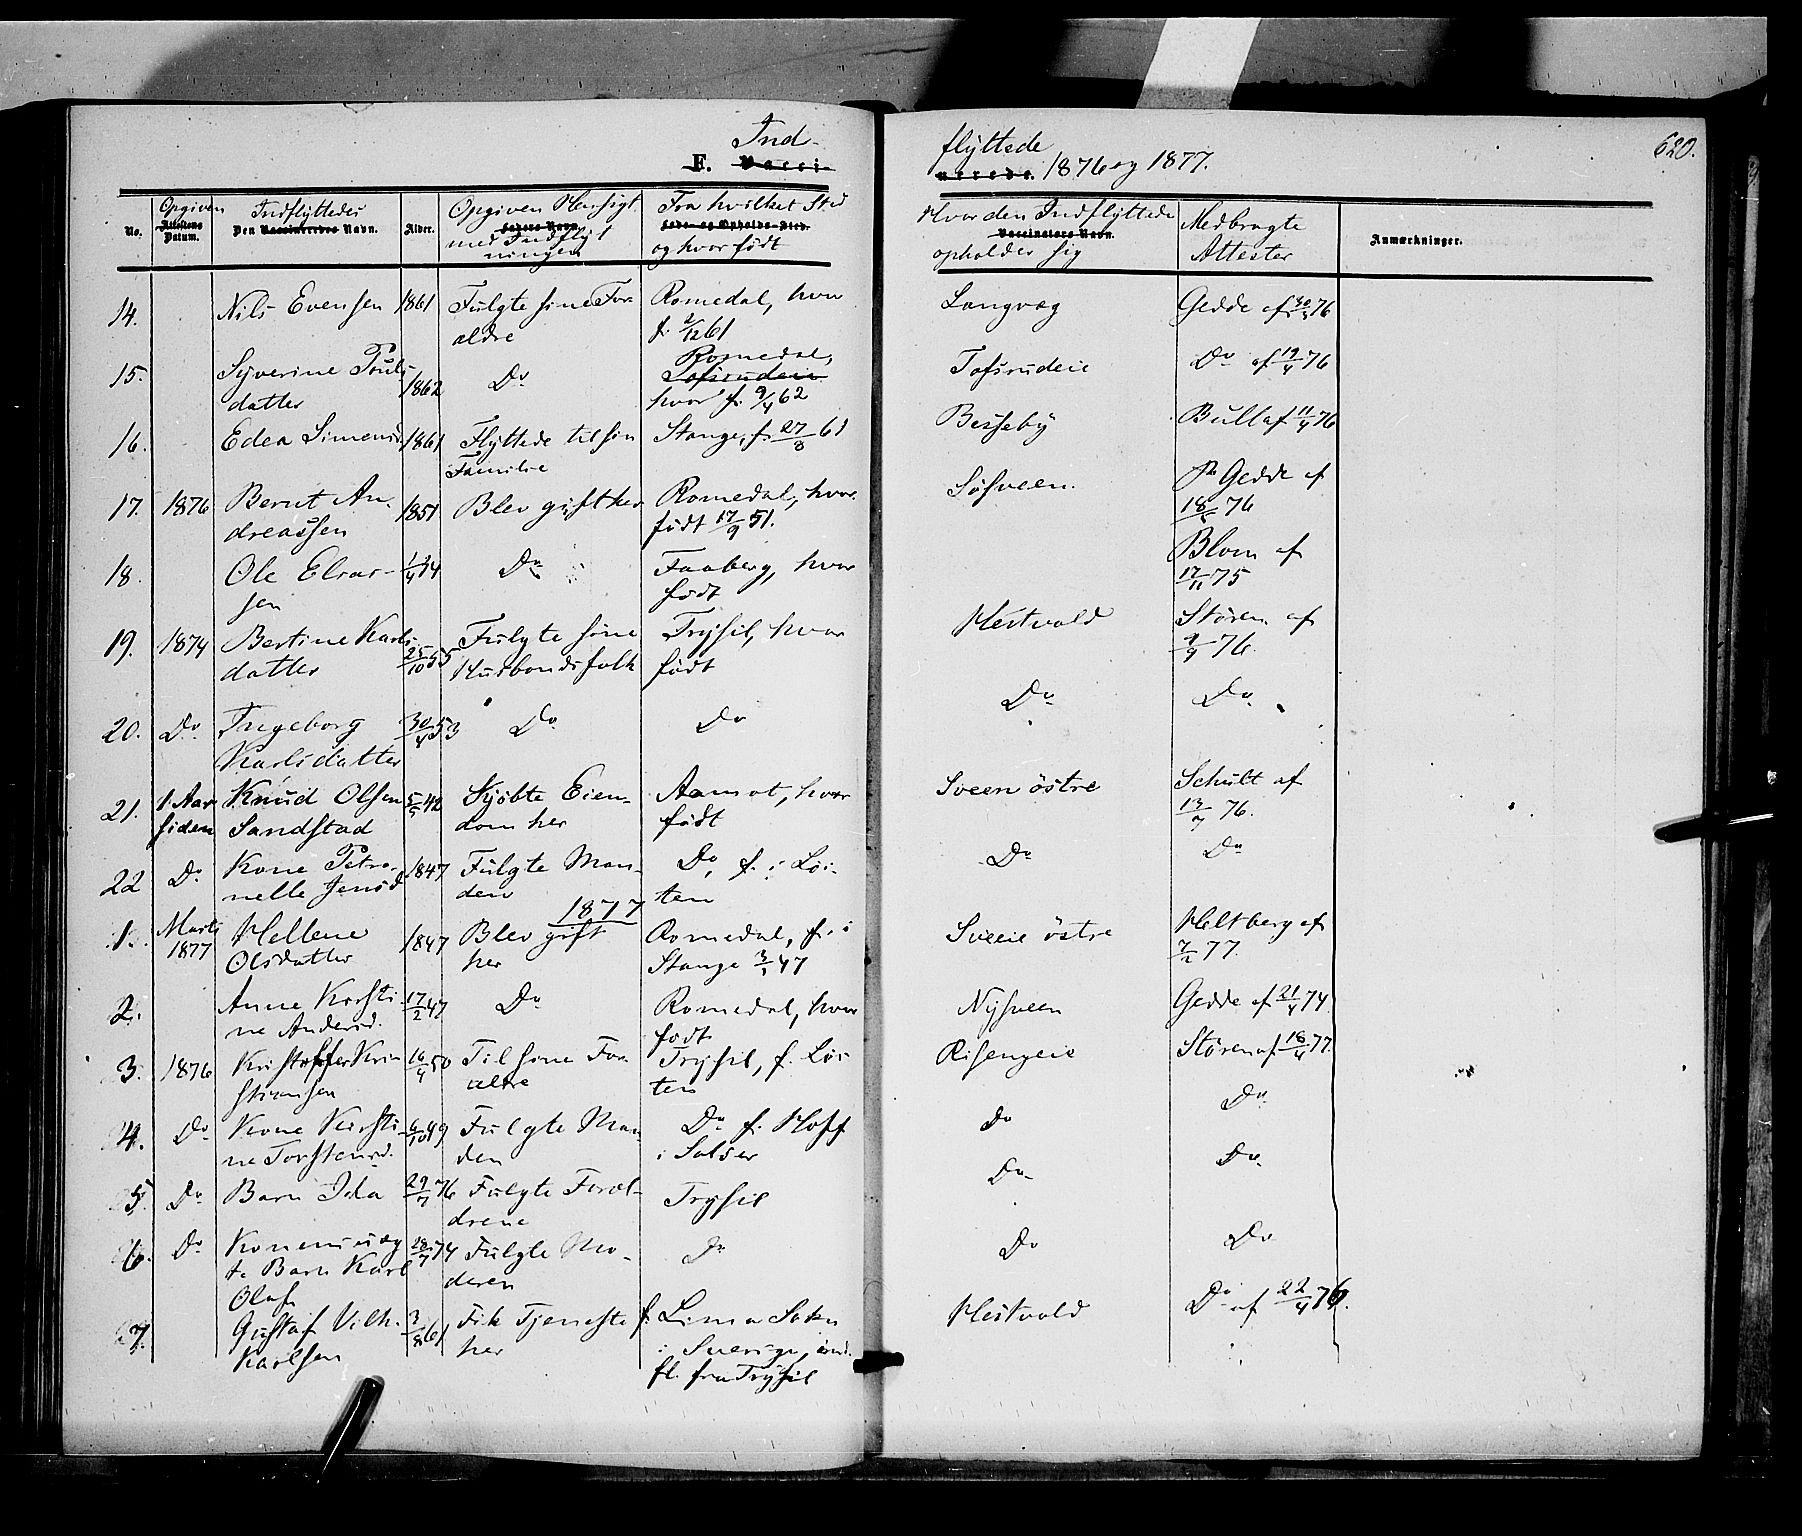 Ind-
F. Vacci-
flyttede
nerede. 1876 og 1877.
620.
No.
Opgiven
Attestens
Datum.
Indflyttedes
Den Vaccineredes Navn.
Alder.
Opgiven Hensigt
Faders Navn
med Indflyt
ningen
Fra hvilket Sted
Føde- og Opholds-Sted.
og hvor født
Hvor den Indflyttede
Vaccinators Navn.
opholder sig
Medbragte
Attester
Anmærkninger.
14. Nils Evensen 1861 Fulgte sine For- Romedal, hvor Langvæg Gedde af 76
ældre f. 2/12 61
15. Syverine Pouls- 1862 Do Romedal, Tofsrudeie Do af 19/4 76
datter Tofsrudeie
hvor f. 9/4 62
16. Edea Simensd 1861 Flyttede til sin Stange, f. 27/8 61 Besseby Bull af 11/4 76
Familie
17. 1876 Bernt An- 1851 Blev gift her Romedal, hvor Gedde af
dreassen født 17/9 51. 18/5 76
18. Ole Elias- Do Faaberg, hvor Blom af
sen født 17/11 75
19. 1874 Bertine Karls- 25/10 55 Fulgte sine Trysil, hvor Hestvold Støren af
datter Husbondsfolk født 76.
20. Do Ingeborg 30/4 53 Do Do Do Do
Karlsdatter
21. 1 Aar Knud Olsen 5/5 42 Kjøbte Eien- Aamot, hvor Sveen østre Schult af
siden Sandstad dom her født 13/7 76.
22 Do Kone Petro- 1847 Fulgte Man- Do, f. i Løi- Do Do
nelle Jensd den ten
1877
1. Marts Hellene 1847 Blev gift Romedal, f. i Sveeie østre Heltberg af
1877 Olsdatter her Stange 3/1 47 7/2 77.
2. Anne Kirsti- 17/2 47 Do Romedal, hvor Nysveen Gedde af 21/4 74
ne Andersd. født
3. 1876 Kristoffer Kri- 16/4 50 Til sine For- Trysil, f. Løi- Risengeie Støren af 18/4 77.
stiansen ældre ten
4. Do Kone Kirsti- 6/10 49 Fulgte Man- Do f. Hoff Do Do
ne Torstensd. den i Soløer
5. Do Barn Ida 29/7 76 Fulgte Foræl- Trysil Do Do
drene
6. Do Konens uæg- 28/7 74 Fulgte Mo- Do Do Do
te Barn Karl deren
Olaf
7. Gustaf Vilh. 3/8 61 Fik Tjeneste f. Lima Sokn Hestvold Do af 22/4 76.
Karlsen her i Sverige, ind.
fl. fra Trysil